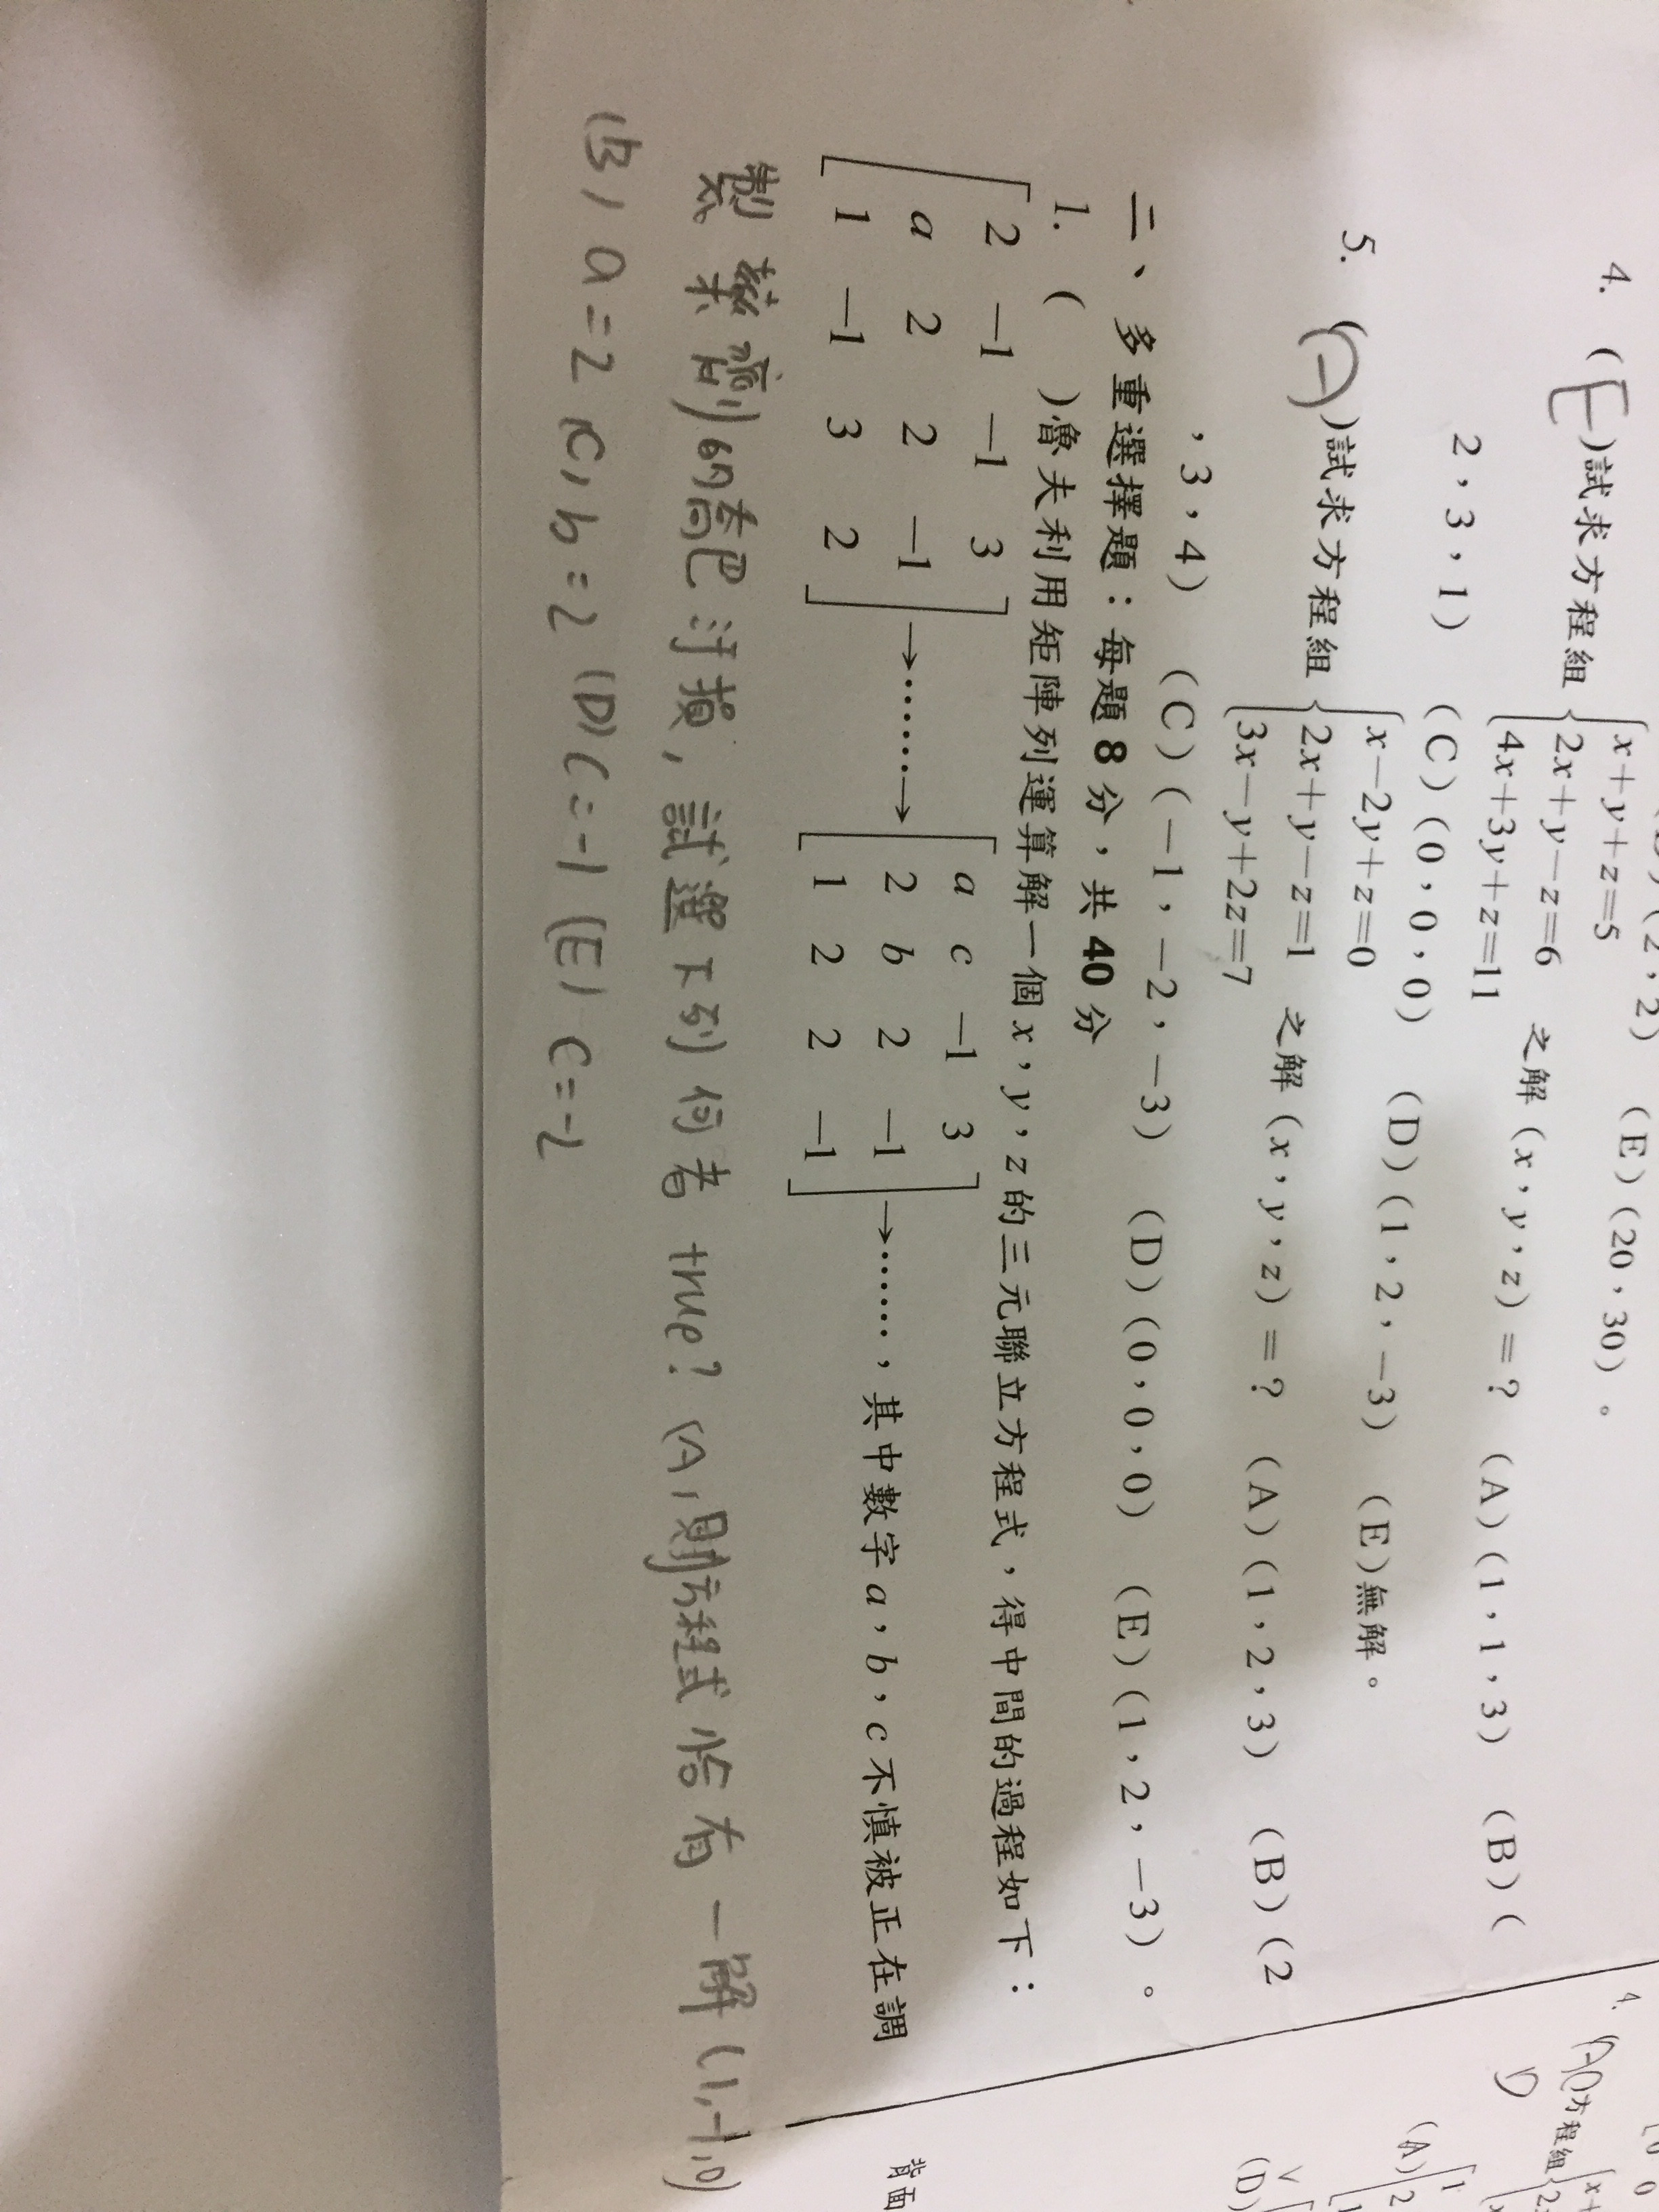 (2,2) (E)(20,30)。
4. (E)試求方程組
x+y+z=5
2x+y-z=6
4x+3y+z=11
之解(x,y,z)=? (A)(1,1,3) (B)(
2,3,1) (C)(0,0,0) (D)(1,2,-3) (E)無解。
5. ( )試求方程組
x-2y+z=0
2x+y-z=1
3x-y+2z=7
之解(x,y,z)=? (A)(1,2,3) (B)(2
,3,4) (C)(-1,-2,-3) (D)(0,0,0) (E)(1,2,-3)。
二、多重選擇題:每題 8 分,共 40 分
1. ( )魯夫利用矩陣列運算解一個 x,y,z 的三元聯立方程式,得中間的過程如下:
2 -1 -1 3
a 2 2 -1
1 -1 3 2
→……→
a c -1 3
2 b 2 -1
1 2 2 -1
→……,其中數字 a,b,c 不慎被正在調
製藥劑的喬巴汙損,試選下列何者 true? (A)則方程式恰有一解(1,-1,0)
(B) a=2 (C) b=2 (D) c=-1 (E) c=-2
4.
方程組
(A)
(D)
背面